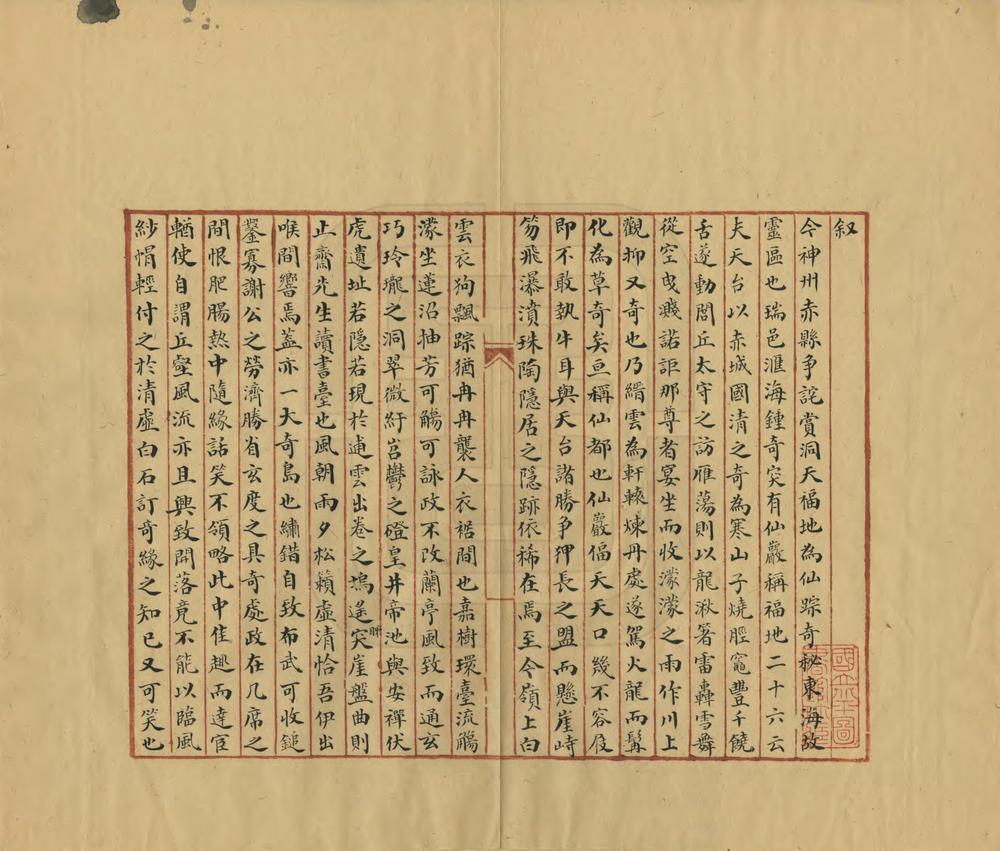 叙
今神州赤縣争詫賞洞天福地為仙踪奇秘東海故
靈區也瑞邑滙海鍾奇突有仙巖稱福地二十六云
夫天台以赤城國清之奇為寒山子燒脛竈豐干饒
舌遂動閭丘太守之訪雁蕩則以龍湫箸雷轟雪舞
從空曳濺諾詎那尊者宴坐而收濛濛之雨作川上
觀抑又奇也乃縉雲為軒轅煉丹處遂駕火龍而髯
化為草奇矣亘稱仙都也仙巖偪天天口幾不容屐
即不敢執牛耳與天台諸勝争狎長之盟而懸崖峙
笏飛瀑濆珠陶隱居之隱跡依稀在焉至今嶺上白
雲衣狗飄踪猶冉冉襲人衣裾間也嘉樹環臺流觴
濛坐蓮沼抽芳可觴可詠政不改蘭亭風致而通玄
巧玲瓏之洞翠微紆岧欎之磴皇井帝池與安禪伏
虎遺址若隱若現於逋雲出卷之塢遙突崖盤曲則
止齋先生讀書臺也風朝雨夕松籟虛清恰吾伊出
喉間響焉蓋亦一大奇島也繡錯自致布武可收鎚
鑿寡謝公之勞濟勝省玄度之具奇處政在几席之
間恨肥腸熱中隨緣話笑不領略此中佳趣而達官
輶使自謂丘壑風流亦且興致開落竟不能以臨風
紗帽輕付之於清虛白石訂奇緣之知已又可笑也